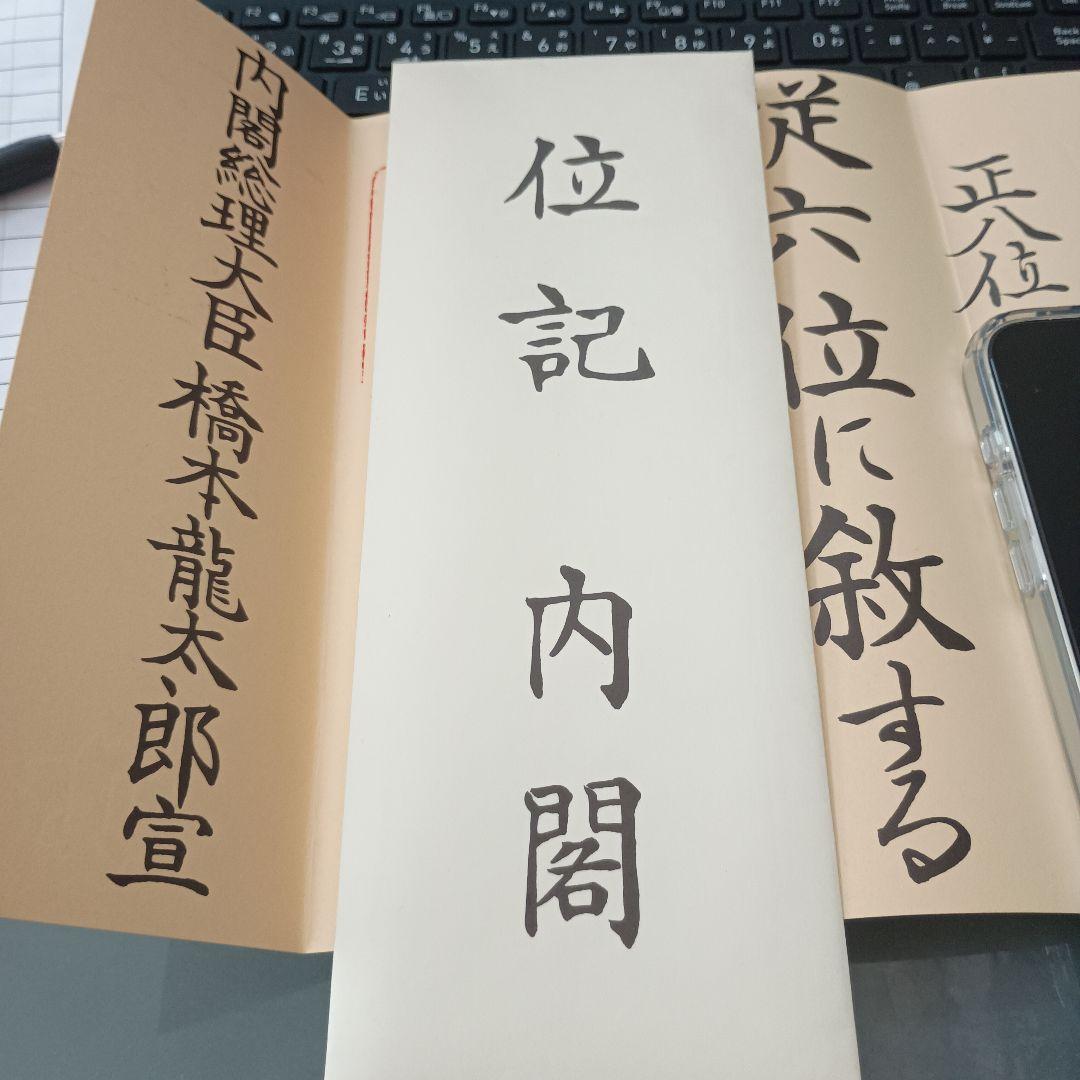 正八位
従六位に敘する
位記 内閣
内閣総理大臣橋本龍太郎宣